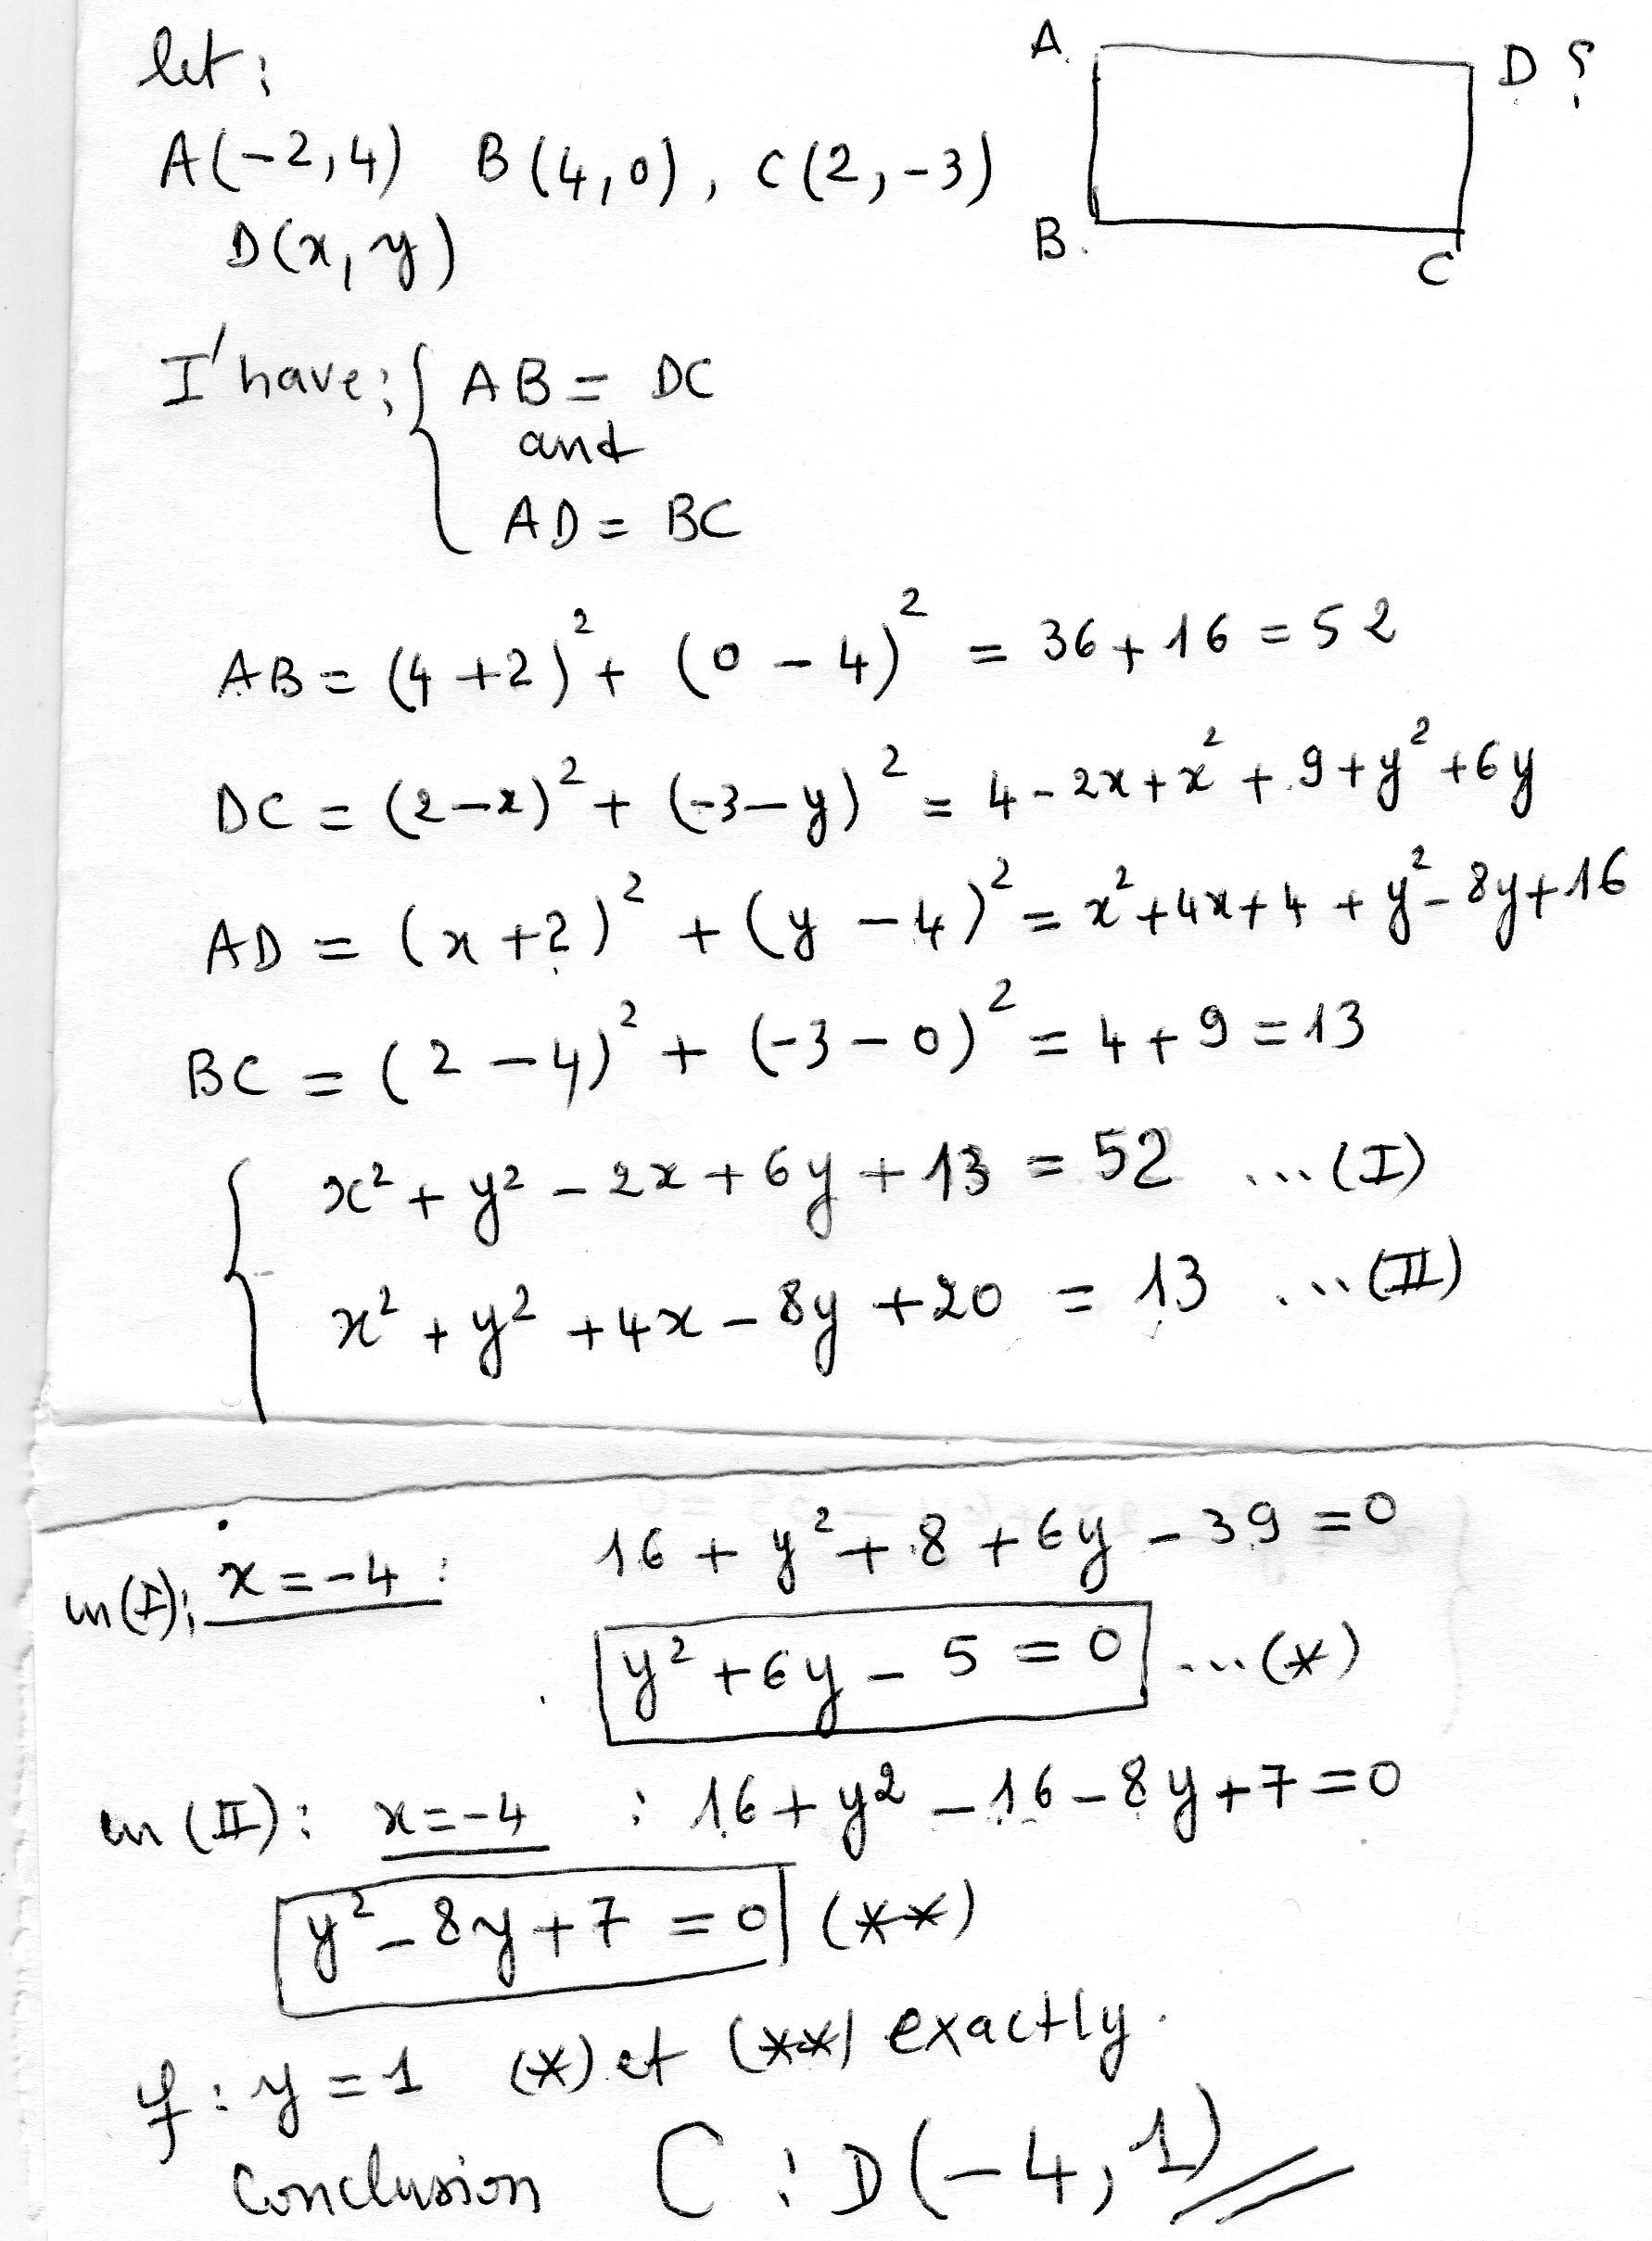 let:
A D ?
A(-2,4) B(4,0), C(2,-3)
D(x,y)
B. C
I'have: { AB = DC
and
AD = BC
AB = (4+2)² + (0-4)² = 36+16 = 52
DC = (2-x)² + (-3-y)² = 4-2x+x²+9+y²+6y
AD = (x+2)² + (y-4)² = x²+4x+4+y²-8y+16
BC = (2-4)² + (-3-0)² = 4+9 = 13
{ x²+y²-2x+6y+13 = 52 ...(I)
x²+y²+4x-8y+20 = 13 ...(II)
in(I): x=-4: 16+y²+8+6y-39=0
y²+6y-5=0 ...(*)
in(II): x=-4 : 16+y²-16-8y+7=0
y²-8y+7=0 (**)
if: y=1 (*) et (**) exactly.
Conclusion C : D(-4,1)